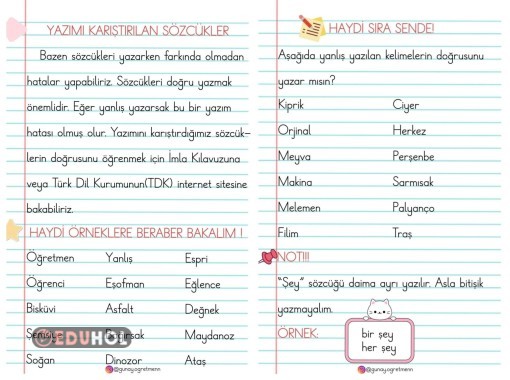 YAZIMI KARIŞTIRILAN SÖZCÜKLER
Bazen sözcükleri yazarken farkında olmadan
hatalar yapabiliriz. Sözcükleri doğru yazmak
önemlidir. Eğer yanlış yazarsak bu bir yazım
hatası olmuş olur. Yazımını karıştırdığımız sözcük-
lerin doğrusunu öğrenmek için İmla Kılavuzuna
veya Türk Dil Kurumunun(TDK) internet sitesine
bakabiliriz.
HAYDİ ÖRNEKLERE BERABER BAKALIM !
Öğretmen Yanlış Espri
Öğrenci Eşofman Eğlence
Bisküvi Asfalt Değnek
Maydanoz
Soğan Dinozor Ataş
EDUHOJ
@gunayogretmenn
HAYDİ SIRA SENDE!
Aşağıda yanlış yazılan kelimelerin doğrusunu
yazar mısın?
Kiprik Ciyer
Orjinal Herkez
Meyva Perşenbe
Makina Sarmısak
Melemen Palyanço
Filim Traş
NOT!!!
"Şey" sözcüğü daima ayrı yazılır. Asla bitişik
yazmayalım.
ÖRNEK:
bir şey
her şey
@gunayogretmenn